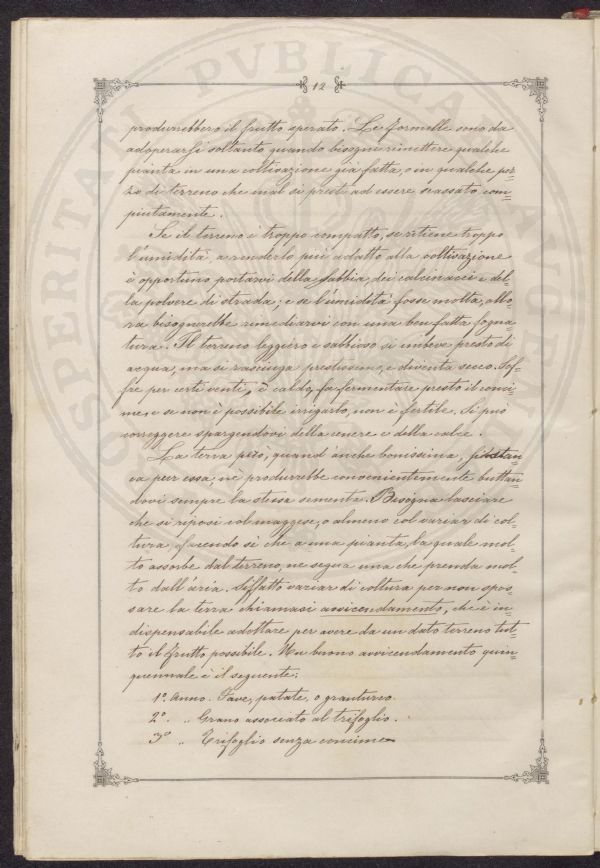 12
produrrebbero il frutto sperato. Le formelle sono da
adoperarsi soltanto quando bisogni rimettere qualche
pianta in una coltivazione già fatta, o in qualche pez=
zo di terreno che mal si presti ad essere scassato com=
piutamente.
Se il terreno è troppo compatto, se ritiene troppo
l'umidità, a renderlo più adatto alla coltivazione
è opportuno portarvi della sabbia, dei calcinacci e del=
la polvere di strada; e se l'umidità fosse molta, allo=
ra bisognerebbe rimediarvi con una ben fatta fogna=
tura. Il terreno leggiero e sabbioso si imbeve presto di
acqua, ma si rasciuga prestissimo, e diventa secco. Sof=
fre per certi venti, è caldo, fa fermentare presto il conci=
me, e se non è possibile irrigarlo, non è fertile. Si può
correggere spargendovi della cenere e della calce.
La terra però, quand'anche bonissima,
ca pur essa, nè produrrebbe convenientemente buttan=
dovi sempre la stessa sementa. Bisogna lasciare
che si riposi col maggese, o almeno col variar di col=
tura, facendo sì che a una pianta, la quale mol=
to assorbe dal terreno, ne segua una che prenda mol=
to dall'aria. Siffatto variar di coltura per non spos=
sare la terra chiamasi avvicendamento, ch'è in=
dispensabile adottare per avere da un dato terreno tut=
to il frutto possibile. Un buono avvicendamento quin=
quennale è il seguente:
1º. Anno. Fave, patate, o granturco.
2º. „ Grano associato al trifoglio.
3º „ Trifoglio senza concime
PROSPERITATI PVBLICAE AVGENDAE